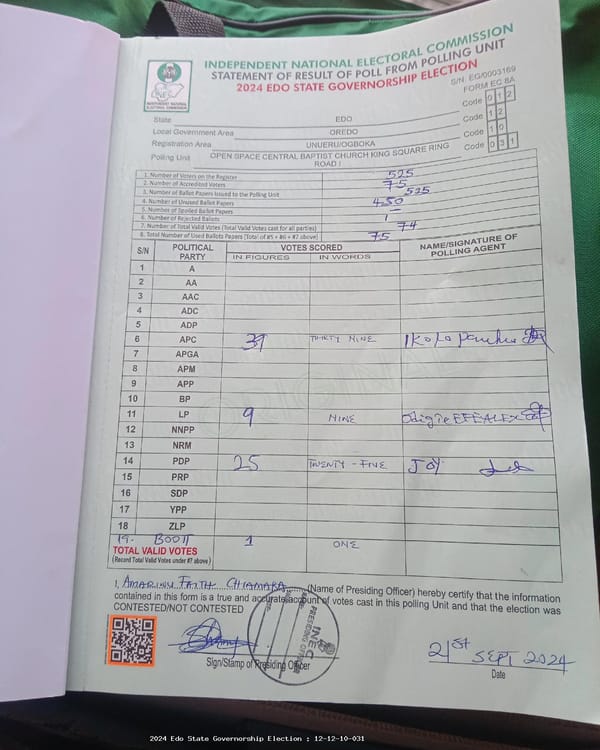 INDEPENDENT NATIONAL ELECTORAL COMMISSION
STATEMENT OF RESULT OF POLL FROM POLLING UNIT
2024 EDO STATE GOVERNORSHIP ELECTION
S/N. EG/0003169
FORM EC 8A
INDEPENDENT NATIONAL ELECTORAL COMMISSION
State EDO Code 0 1 2
Local Government Area OREDO Code 1 2
Registration Area UNUERU/OGBOKA Code 1 0
Polling Unit OPEN SPACE CENTRAL BAPTIST CHURCH KING SQUARE RING ROAD I Code 0 3 1
1. Number of Voters on the Register 525
2. Number of Accredited Voters 75
3. Number of Ballot Papers Issued to the Polling Unit 525
4. Number of Unused Ballot Papers 450
5. Number of Spoiled Ballot Papers —
6. Number of Rejected Ballots 1
7. Number of Total Valid Votes (Total Valid Votes cast for all parties) 74
8. Total Number of Used Ballots Papers (Total of #5 + #6 + #7 above) 75
S/N POLITICAL PARTY VOTES SCORED NAME/SIGNATURE OF POLLING AGENT
IN FIGURES IN WORDS
1 A
2 AA
3 AAC
4 ADC
5 ADP
6 APC 39 THIRTY NINE
7 APGA
8 APM
9 APP
10 BP
11 LP 9 NINE Odigie EFE ALEX
12 NNPP
13 NRM
14 PDP 25 TWENTY - FIVE JOY
15 PRP
16 SDP
17 YPP
18 ZLP
19. BOOT 1 ONE
TOTAL VALID VOTES
(Record Total Valid Votes under #7 above)
I, FAITH CHIAMAKA (Name of Presiding Officer) hereby certify that the information
contained in this form is a true and accurate account of votes cast in this polling Unit and that the election was
CONTESTED/NOT CONTESTED
INEC
PRESIDING OFFICER
21ST SEPT 2024
Sign/Stamp of Presiding Officer
Date
2024 Edo State Governorship Election : 12-12-10-031